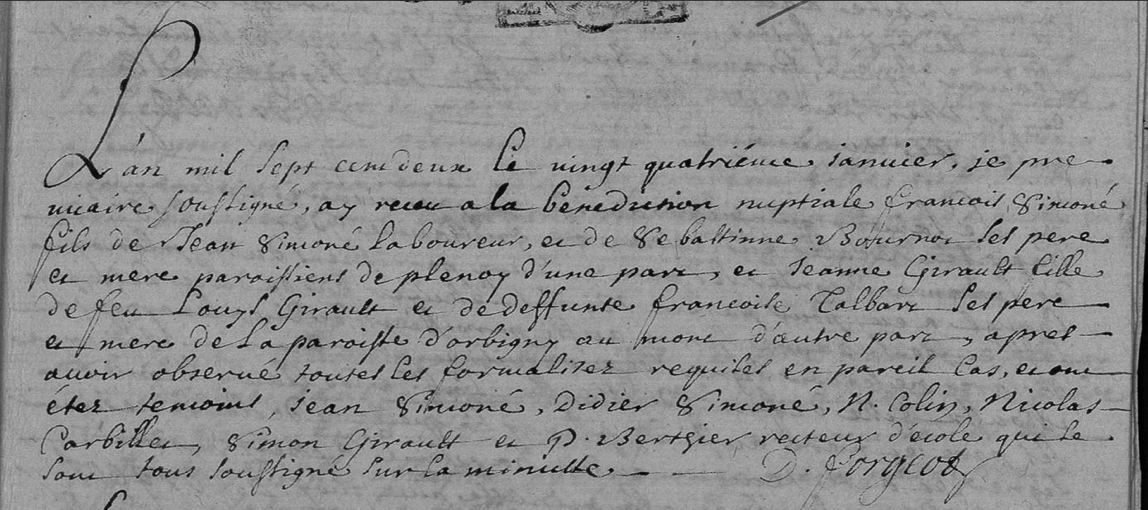 L'an mil sept cent deux le vingt quatriéme ianuier, je pre-
uicaire soussigné, ay receu a la bénédiction nuptiale francois Simoné
fils de Jean Simoné laboureur, et de Sebastinne Bournot ses pere
et mere paroissiens de plenoy d'une part, et Jeanne Girault fille
de feu Louys Girault et de deffunte francoise Talbart ses pere
et mere de la paroisse d'orbigny au mont d'autre part, apres
auoir observé toutes les formalitez requises en pareil cas, et ont
étez temoins, Jean Simoné, Didier Simoné, N. Colin, Nicolas
Carbillet, Simon Girault et P. Bertgier recteur d'école qui se
sont tous soussigné sur la minutte. D. forgeot